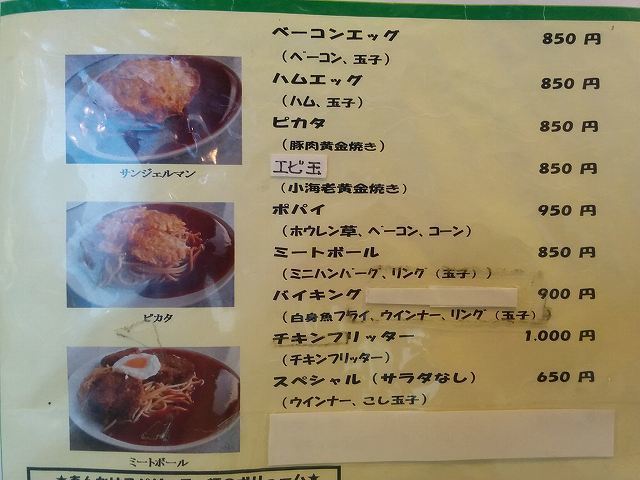 ベーコンエッグ 850 円
（ベーコン、玉子）
ハムエッグ 850 円
（ハム、玉子）
ピカタ 850 円
（豚肉黄金焼き）
エビ玉 850 円
（小海老黄金焼き）
ポパイ 950 円
（ホウレン草、ベーコン、コーン）
ミートボール 850 円
（ミニハンバーグ、リング（玉子））
バイキング 900 円
（白身魚フライ、ウインナー、リング（玉子）
チキンフリッター 1.000 円
（チキンフリッター）
スペシャル（サラダなし） 650 円
（ウインナー、こし玉子）
サンジェルマン
ピカタ
ミートボール